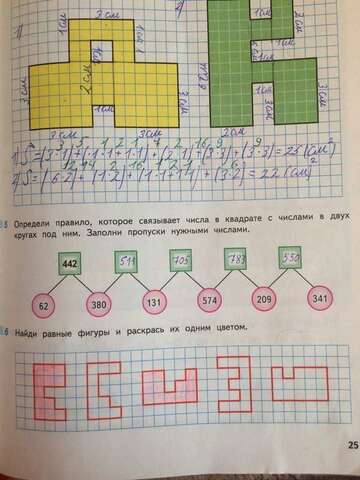 1) 3см 2)
1см
3см 2см 3см
1см
3см 3см 2см
1) S = (3·1)+(1·1+1·1)+(2·1)+(3·3)+(3·3)=25 (см²)
2) S = (6·2)+(1·2)+(1·1+1·1)+(3·2)=22 (см²)
5 Определи правило, которое связывает числа в квадрате с числами в двух
кругах под ним. Заполни пропуски нужными числами.
442 511 705 783 550
62 380 131 574 209 341
6 Найди равные фигуры и раскрась их одним цветом.
25